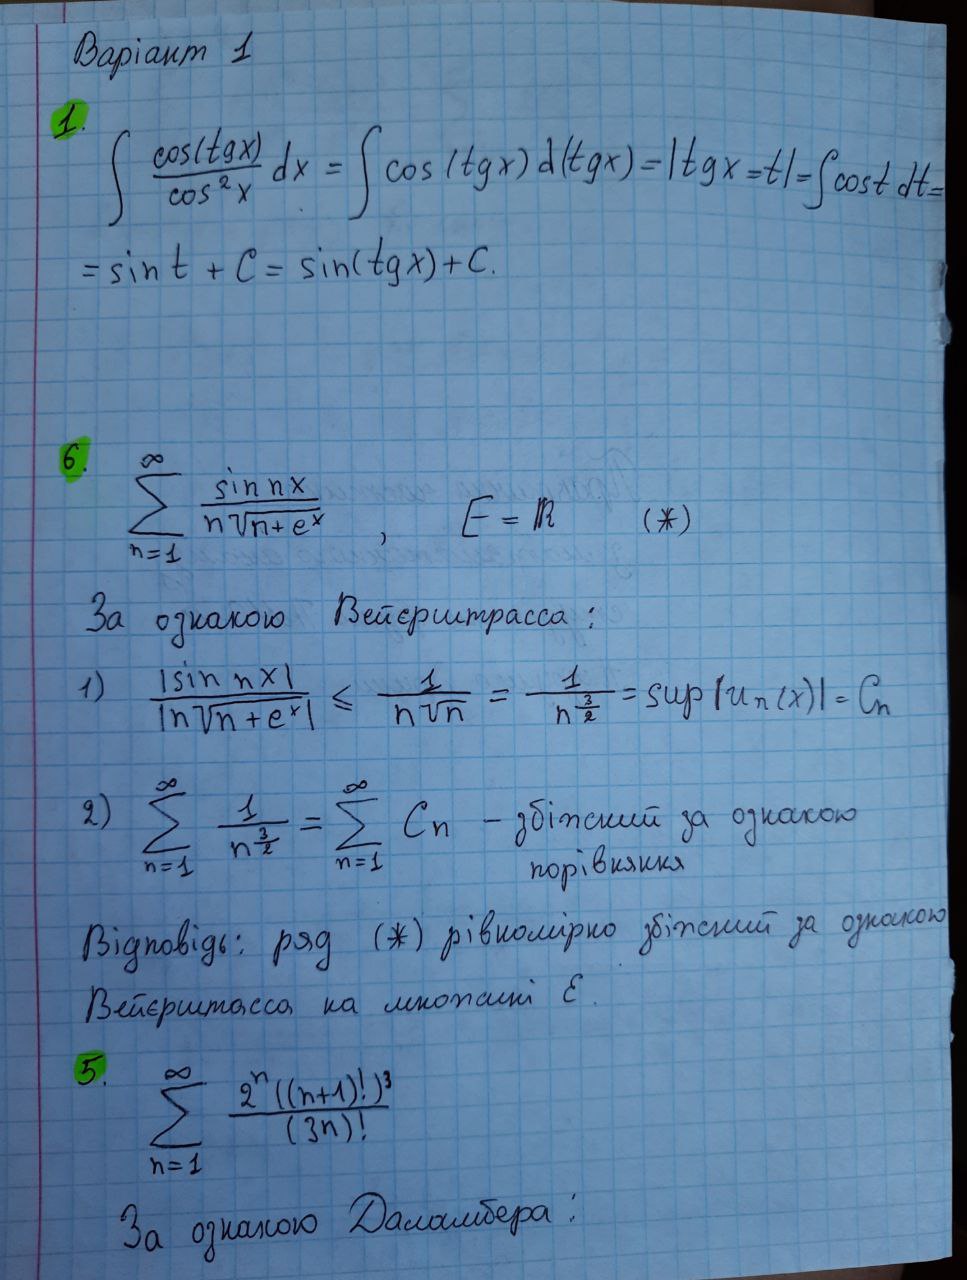 Варіант 1
1.
∫ cos(tgx)/cos²x dx = ∫ cos(tgx) d(tgx) = |tgx = t| = ∫ cost dt =
= sin t + C = sin(tgx) + C.
6.
∞∑n=1 sin nx / n√(n+eˣ) , E = ℝ (*)
За ознакою Вейєрштрасса:
1) |sin nx| / |n√(n+eˣ)| ≤ 1/(n√n) = 1/n^(3/2) = sup|uₙ(x)| = Cₙ
2) ∞∑n=1 1/n^(3/2) = ∞∑n=1 Cₙ – збіжний за ознакою
порівняння
Відповідь: ряд (*) рівномірно збіжний за ознакою
Вейєрштасса на множині E.
5.
∞∑n=1 2ⁿ((n+1)!)³ / (3n)!
За ознакою Даламбера: